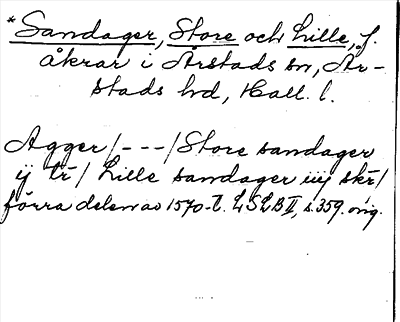 *Sandager, Store och Lille, f.
åkrar i Årstads sn, År-
stads hd, Hall. l.
Agger/---/Store sandager
ij tr/ Lille sandager iiij skr/
förra delen av 1570-t. LSLB II, s. 359. orig.